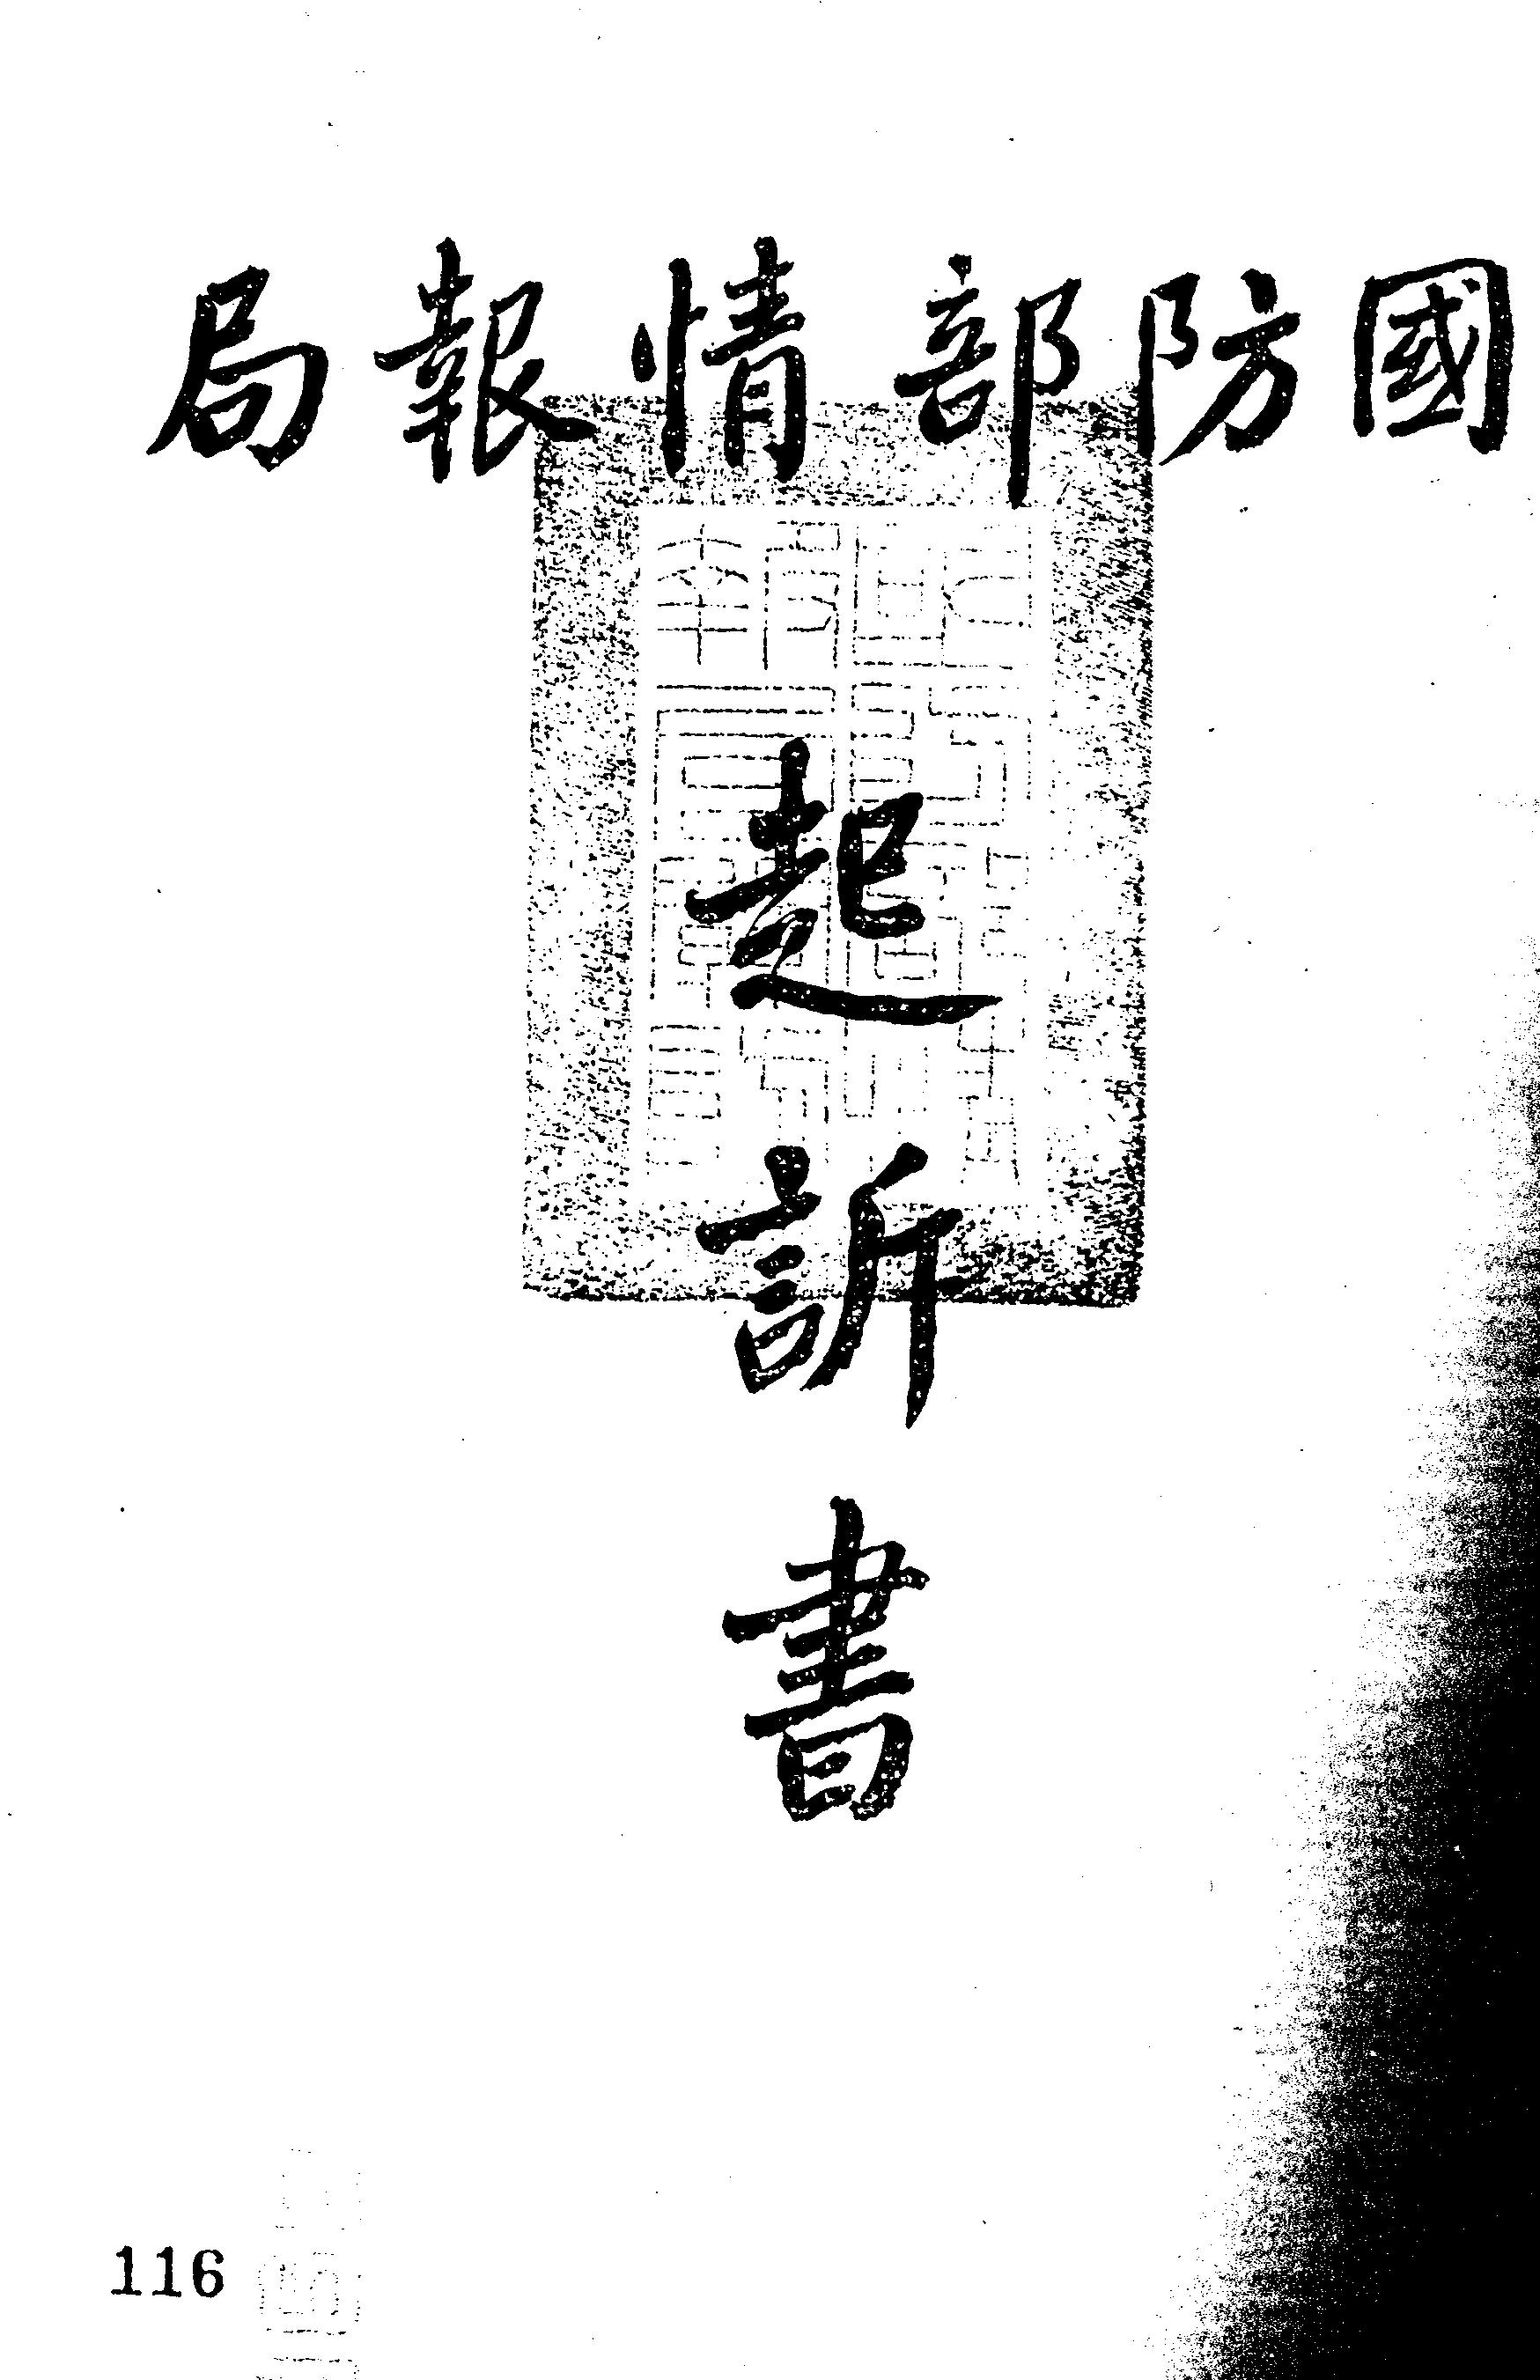 國防部情報局
起訴書
116